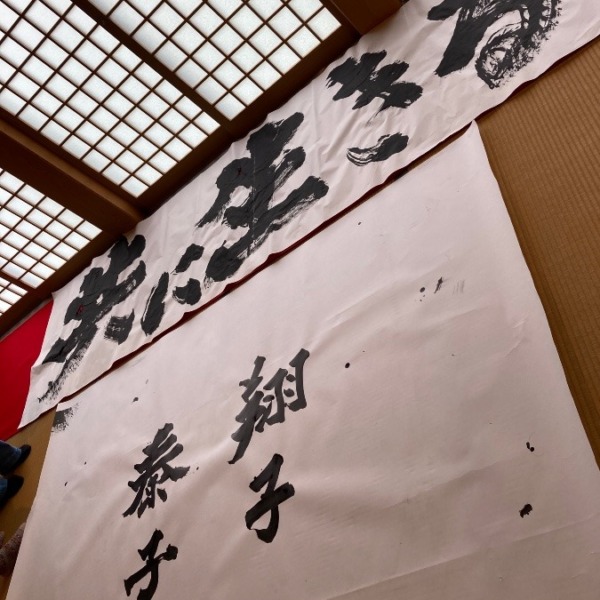 共に生きる
翔子
泰子